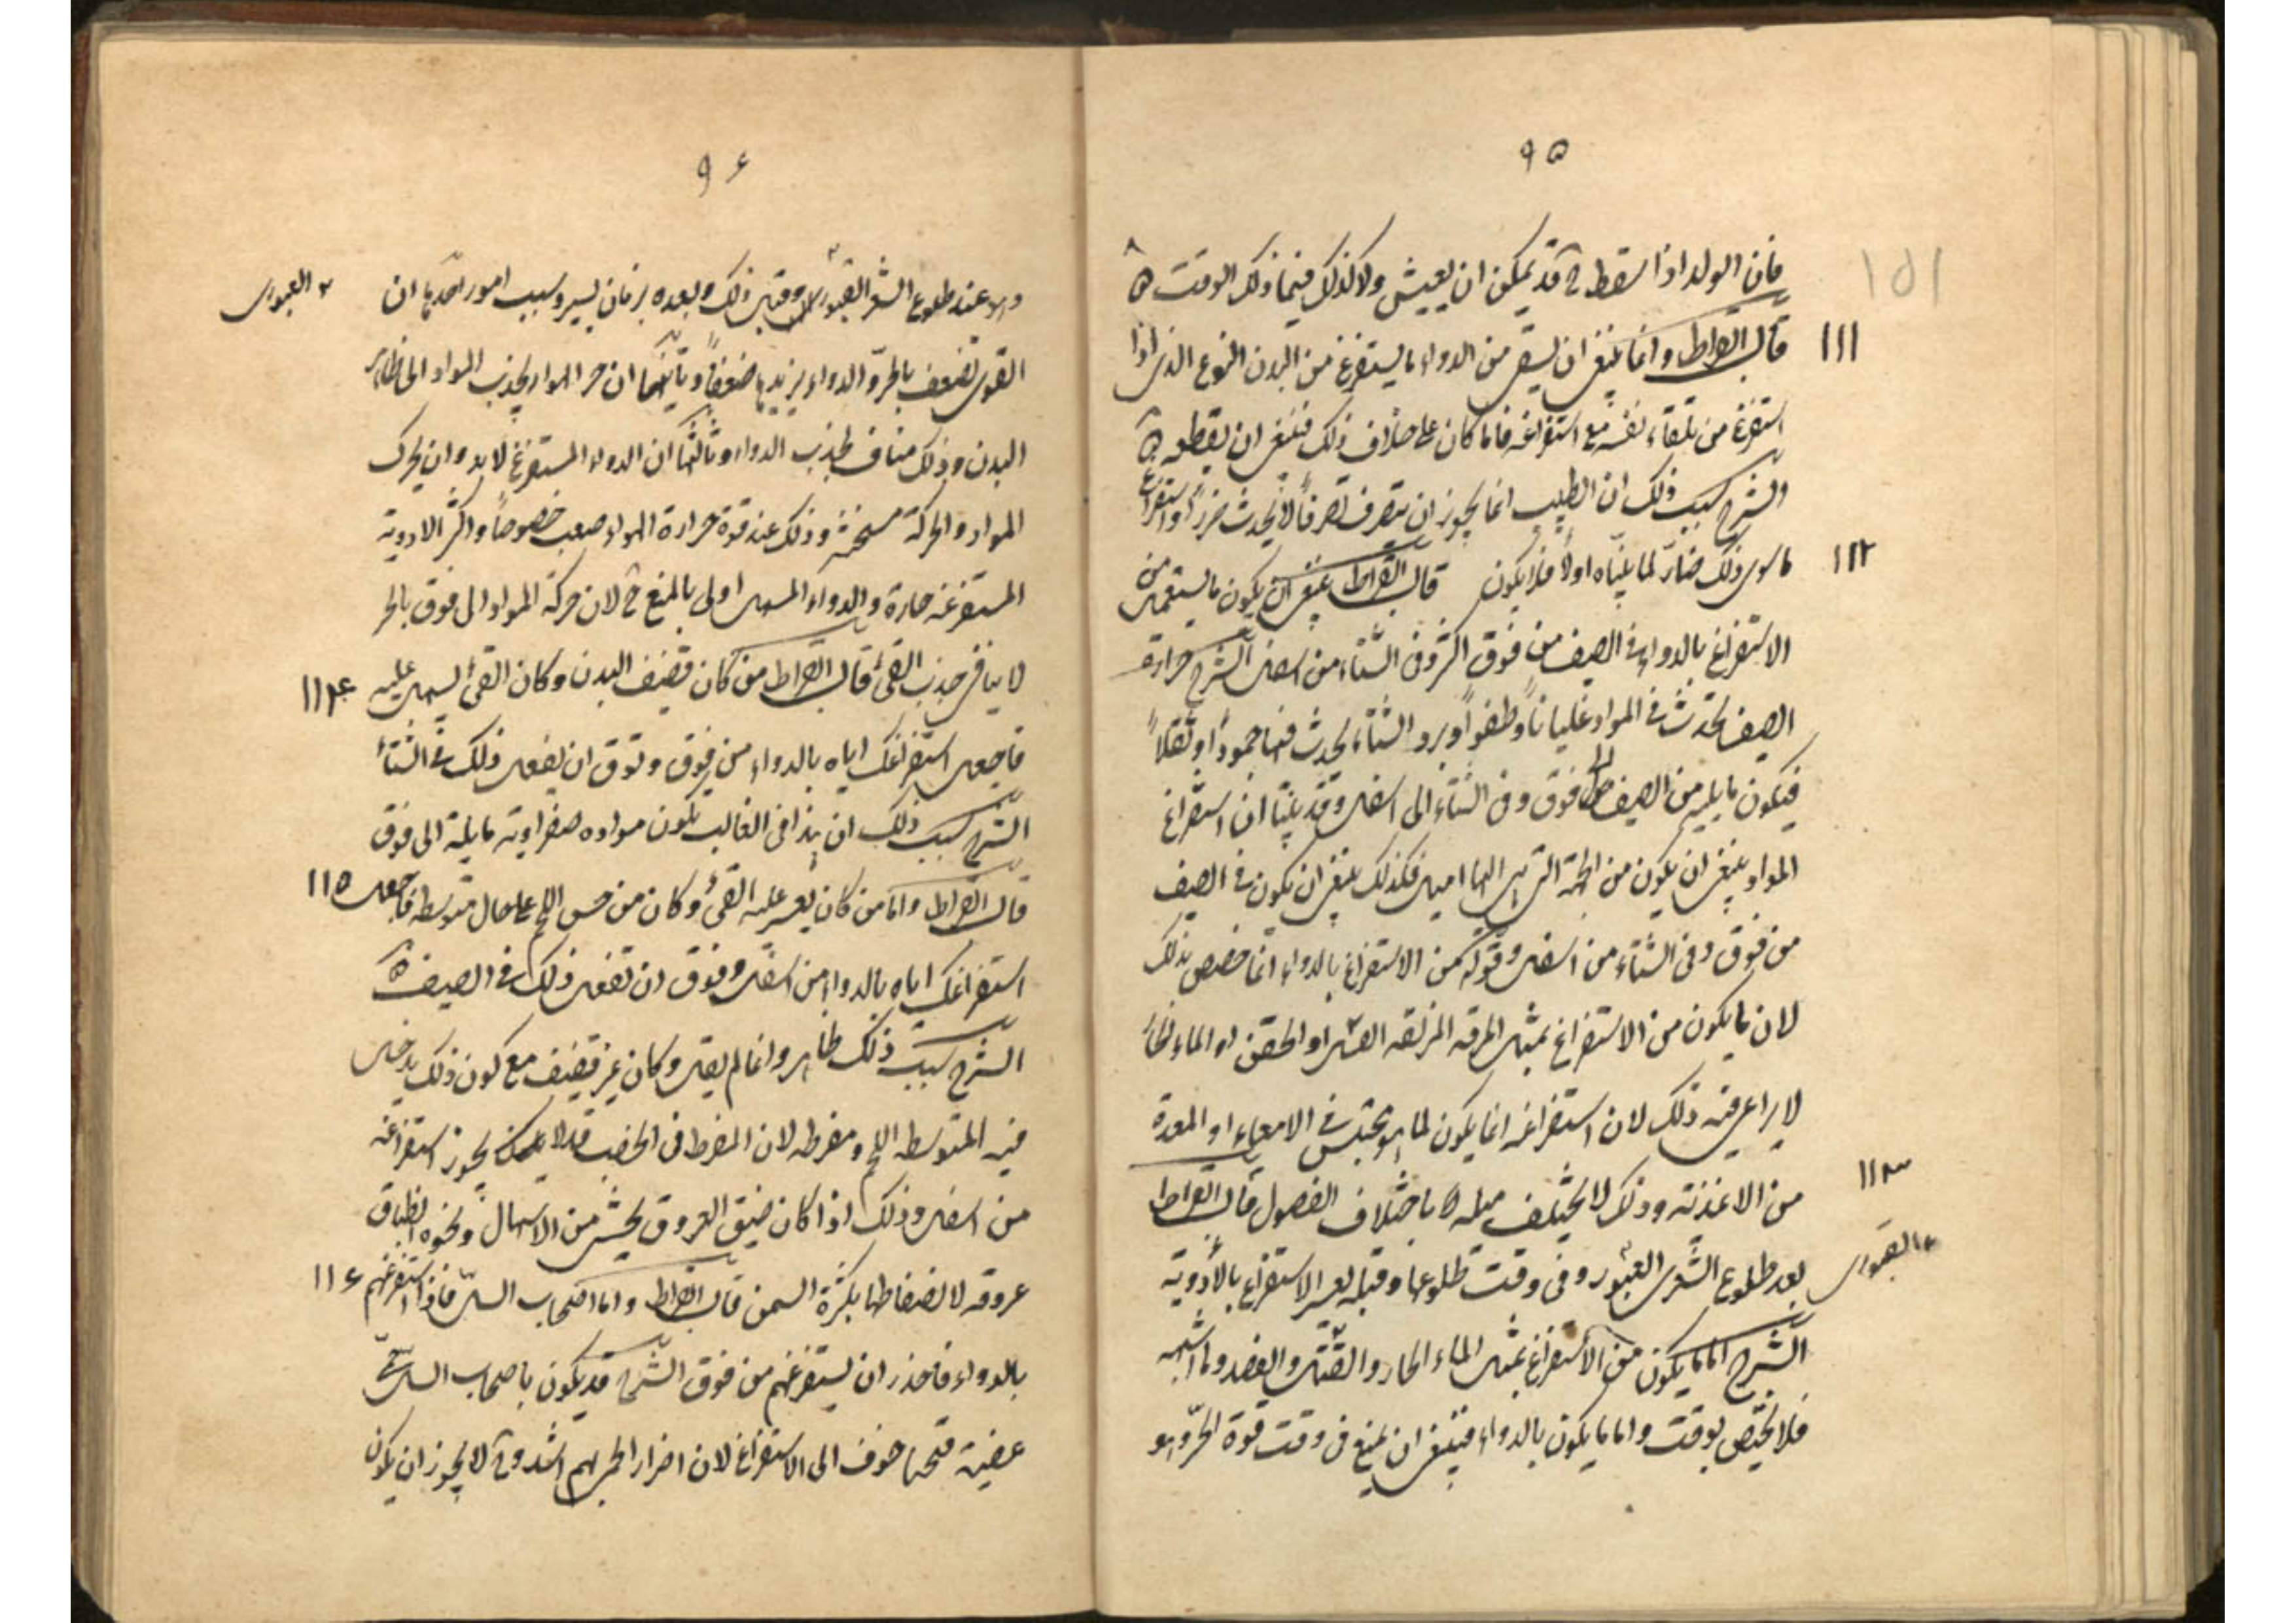 ٩٥
١٥١
فان الولد اذا سقط ح قد يمكن ان يعيش ولا كذلك فيما ذلك الوقت
١١١
قال ابقراط وانما ينبغى ان يسقى من الدواء ما يستفرغ من البدن النوع الذى اذا
استفرغ من تلقاء نفسه مع استفراغه فاما كان على خلاف ذلك فينبغى ان يقطعه
الشرح سبب ذلك ان الطبيب انما يجوز ان يتصرف تصرفاً لا يحدث ضرراً واستفراغ
١١٢
ما سوى ذلك ضارّ لما بيّناه اولاً فلا يكون قال ابقراط ينبغى ان يكون ما يستعمل من
الاستفراغ بالدواء فى الصيف من فوق اكثر وفى الشتاء من اسفل الشرح حرارة
الصيف تحدث فى المواد غلياناً وطفواً وبرد الشتاء يحدث فيها جموداً وثقلاً
فيكون مايلة من الصيف الى فوق وفى الشتاء الى اسفل وقد بيّنا ان استفراغ
المواد ينبغى ان يكون من الجهة التى هى اليها اميل فكذلك ينبغى ان يكون فى الصيف
من فوق وفى الشتاء من اسفل وقوله من الاستفراغ بالدواء انما خصص بذلك
لان ما يكون من الاستفراغ بمثل المرقه المزلقه او الحقن او الماء الحار
لا يراعى فيه ذلك لان استفراغه انما يكون لما هو محتبس فى الامعاء او المعدة
١١٣
من الاغذية وذلك لا يختلف ميله باختلاف الفصول قال ابقراط
بعد طلوع الشعرى العبور وفى وقت طلوعها وقبله يعسر الاستفراغ بالأدوية
العبور
الشرح اما ما يكون من الأستفراغ بمثل الماء الحار والفتل والفصد وما اشبهه
فلا يختص بوقت واما ما يكون بالدواء فينبغى ان يمنع فى وقت قوة الحرّ وهو
٩۶
والا عند طلوع الشعر العبور وقبل ذلك وبعده بزمان يسير وسبب امور احدها ان
العبور
القوى تضعف بالحرّ والدواء يزيدها ضعفاً وثانيها ان حر الهواء يجذب المواد الى ظاهر
البدن وذلك مناف لجذب الدواء وثالثها ان الدواء المستفرغ لا بد وان يحرك
المواد والحركة مسخنة وذلك عند قوة حرارة الهواء صعب خصوصاً واكثر الادوية
المستفرغه حارة والدواء المسهل اولى بالمنع ح لان حركة المواد الى فوق بالحر
لا ينافى جذب القئ قال ابقراط من كان قضيف البدن وكان القئ يسهل عليه
١١۴
فاجعل استفراغك اياه بالدواء من فوق وتوق ان يفعل ذلك فى الشتأ
الشرح سبب ذلك ان هذا فى الغالب يكون مواده صفراوية مايلة الى فوق
قال ابقراط واما من كان يعسر عليه القئ وكان من حسن اللحم على حال متوسطة فاجعل
١١٥
استفراغك اياه بالدواء من اسفل وتوق ان تفعل ذلك فى الصيف
الشرح سبب ذلك ظاهر وانما لم يقل وكان غير قضيف مع كون ذلك يدخل
فيه المتوسط اللحم ومفرطه لان المفرط فى الخصب قد لا يجوز استفراغه
من اسفل وذلك اذا كان ضيق العروق يخشى من الاسهال ونحوه انطباق
عروقه لانضغاطها بكثرة السمن قال ابقراط واما اصحاب السلّ فاذا استفرغتهم
١١۶
بالدواء فاحذر ان يستفرغهم من فوق الشرح قد يكون باصحاب السل
فتحها خوف الى الاستفراغ لان اضرار بهم اشد وح لا يجوز ان يكون